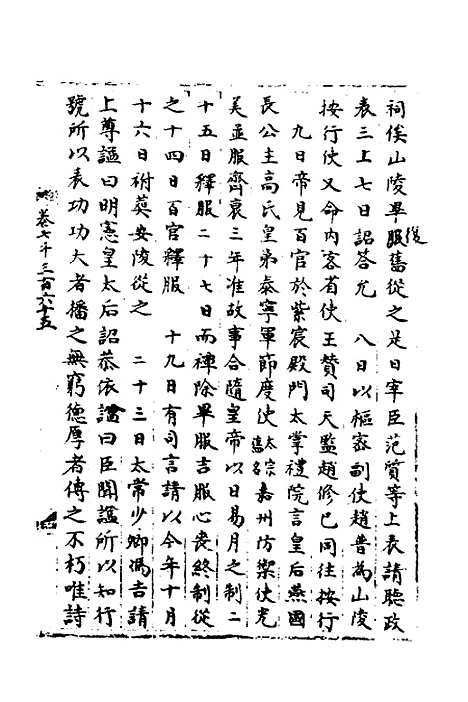 祠俟山陵畢服舊從之是日宰臣范質等上表請聽政
後
表三上七日詔答允　八日以樞密副使趙普為山陵
按行使又命內客省使王贊司天監趙修已同往按行
九日帝見百官於紫宸殿門太掌禮院言皇后燕國
長公主高氏皇弟泰寧軍節度使太宗舊名嘉州防禦使光
美並服齊衰三年准故事合隨皇帝以日易月之制二
十五日釋服二十七日而禫除畢服吉服心喪終制從
之十四日百官釋服　十九日有司言請以今年十月
十六日祔葬安陵從之　二十三日太常少卿馮吉請
上尊謚曰明憲皇太后詔恭依謚議曰臣聞謚所以知行
號所以表功功大者播之無窮德厚者傳之不朽唯詩
卷七千三百六十五